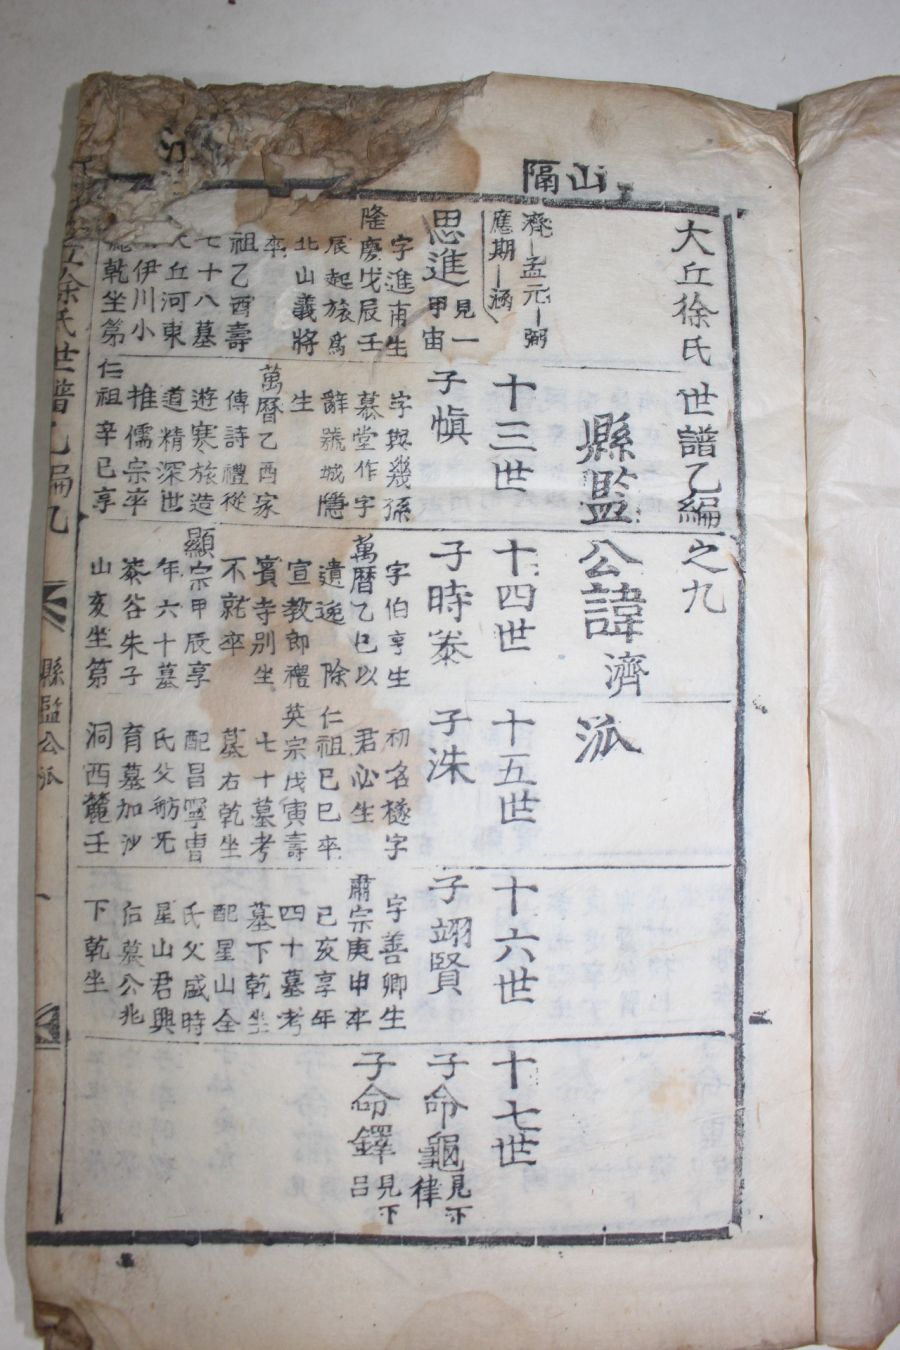 隔山
大丘徐氏世譜乙編之九
縣監公諱濟派
濟─孟元─弼
應期─涵
十三世
十四世
十五世
十六世
十七世
思進見一
甲宙
字進甫生
隆慶戊辰壬
辰起旅爲
北山義將
卒
祖乙酉壽
七十八墓
丘河東
伊川小
乾坐第
子愼
字與幾孫
慕堂作字
辭號城隱
生
萬曆乙酉家
傳詩禮從
遊寒旅造
道精深世
推儒宗卒
仁祖辛巳享
子時泰
字伯亨生
萬曆乙巳以
遺逸除
宣教郎禮
賓寺別坐
不就卒
顯宗甲辰享
年六十墓
泰谷朱子
山亥坐第
子洙
初名檖字
君必生
仁祖己巳卒
英宗戊寅壽
七十墓考
墓右乾坐
配昌寧曺
氏父舫旡
育墓加沙
洞西麓壬
子翊賢
字善卿生
肅宗庚申卒
己亥享年
四十墓考
墓下乾坐
配星山全
氏父盛時
星山君興
仁墓公兆
下乾坐
子命龜見下
律
子命鐸見下
呂
徐氏世譜乙編九
縣監公派
一